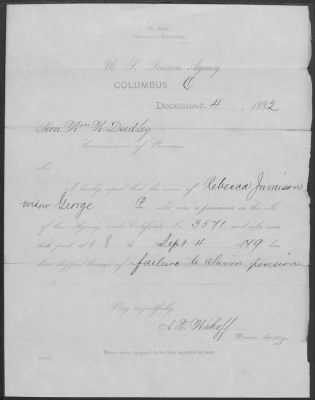 U. S. Pension Agency,
COLUMBUS, O
December 4, 1882
Hon. Wm W. Dudley
Commissioner of Pensions
Sir
I hereby report that the name of Rebecca Jamison
widow George P. who was a pensioner on the rolls
of this Agency under Certificate No 3571 and who was
last paid at $ 8 to Sept 4 1879 has
been dropped because of failure to claim pension
Very respectfully,
A. T. Wikoff
Pension Agent.